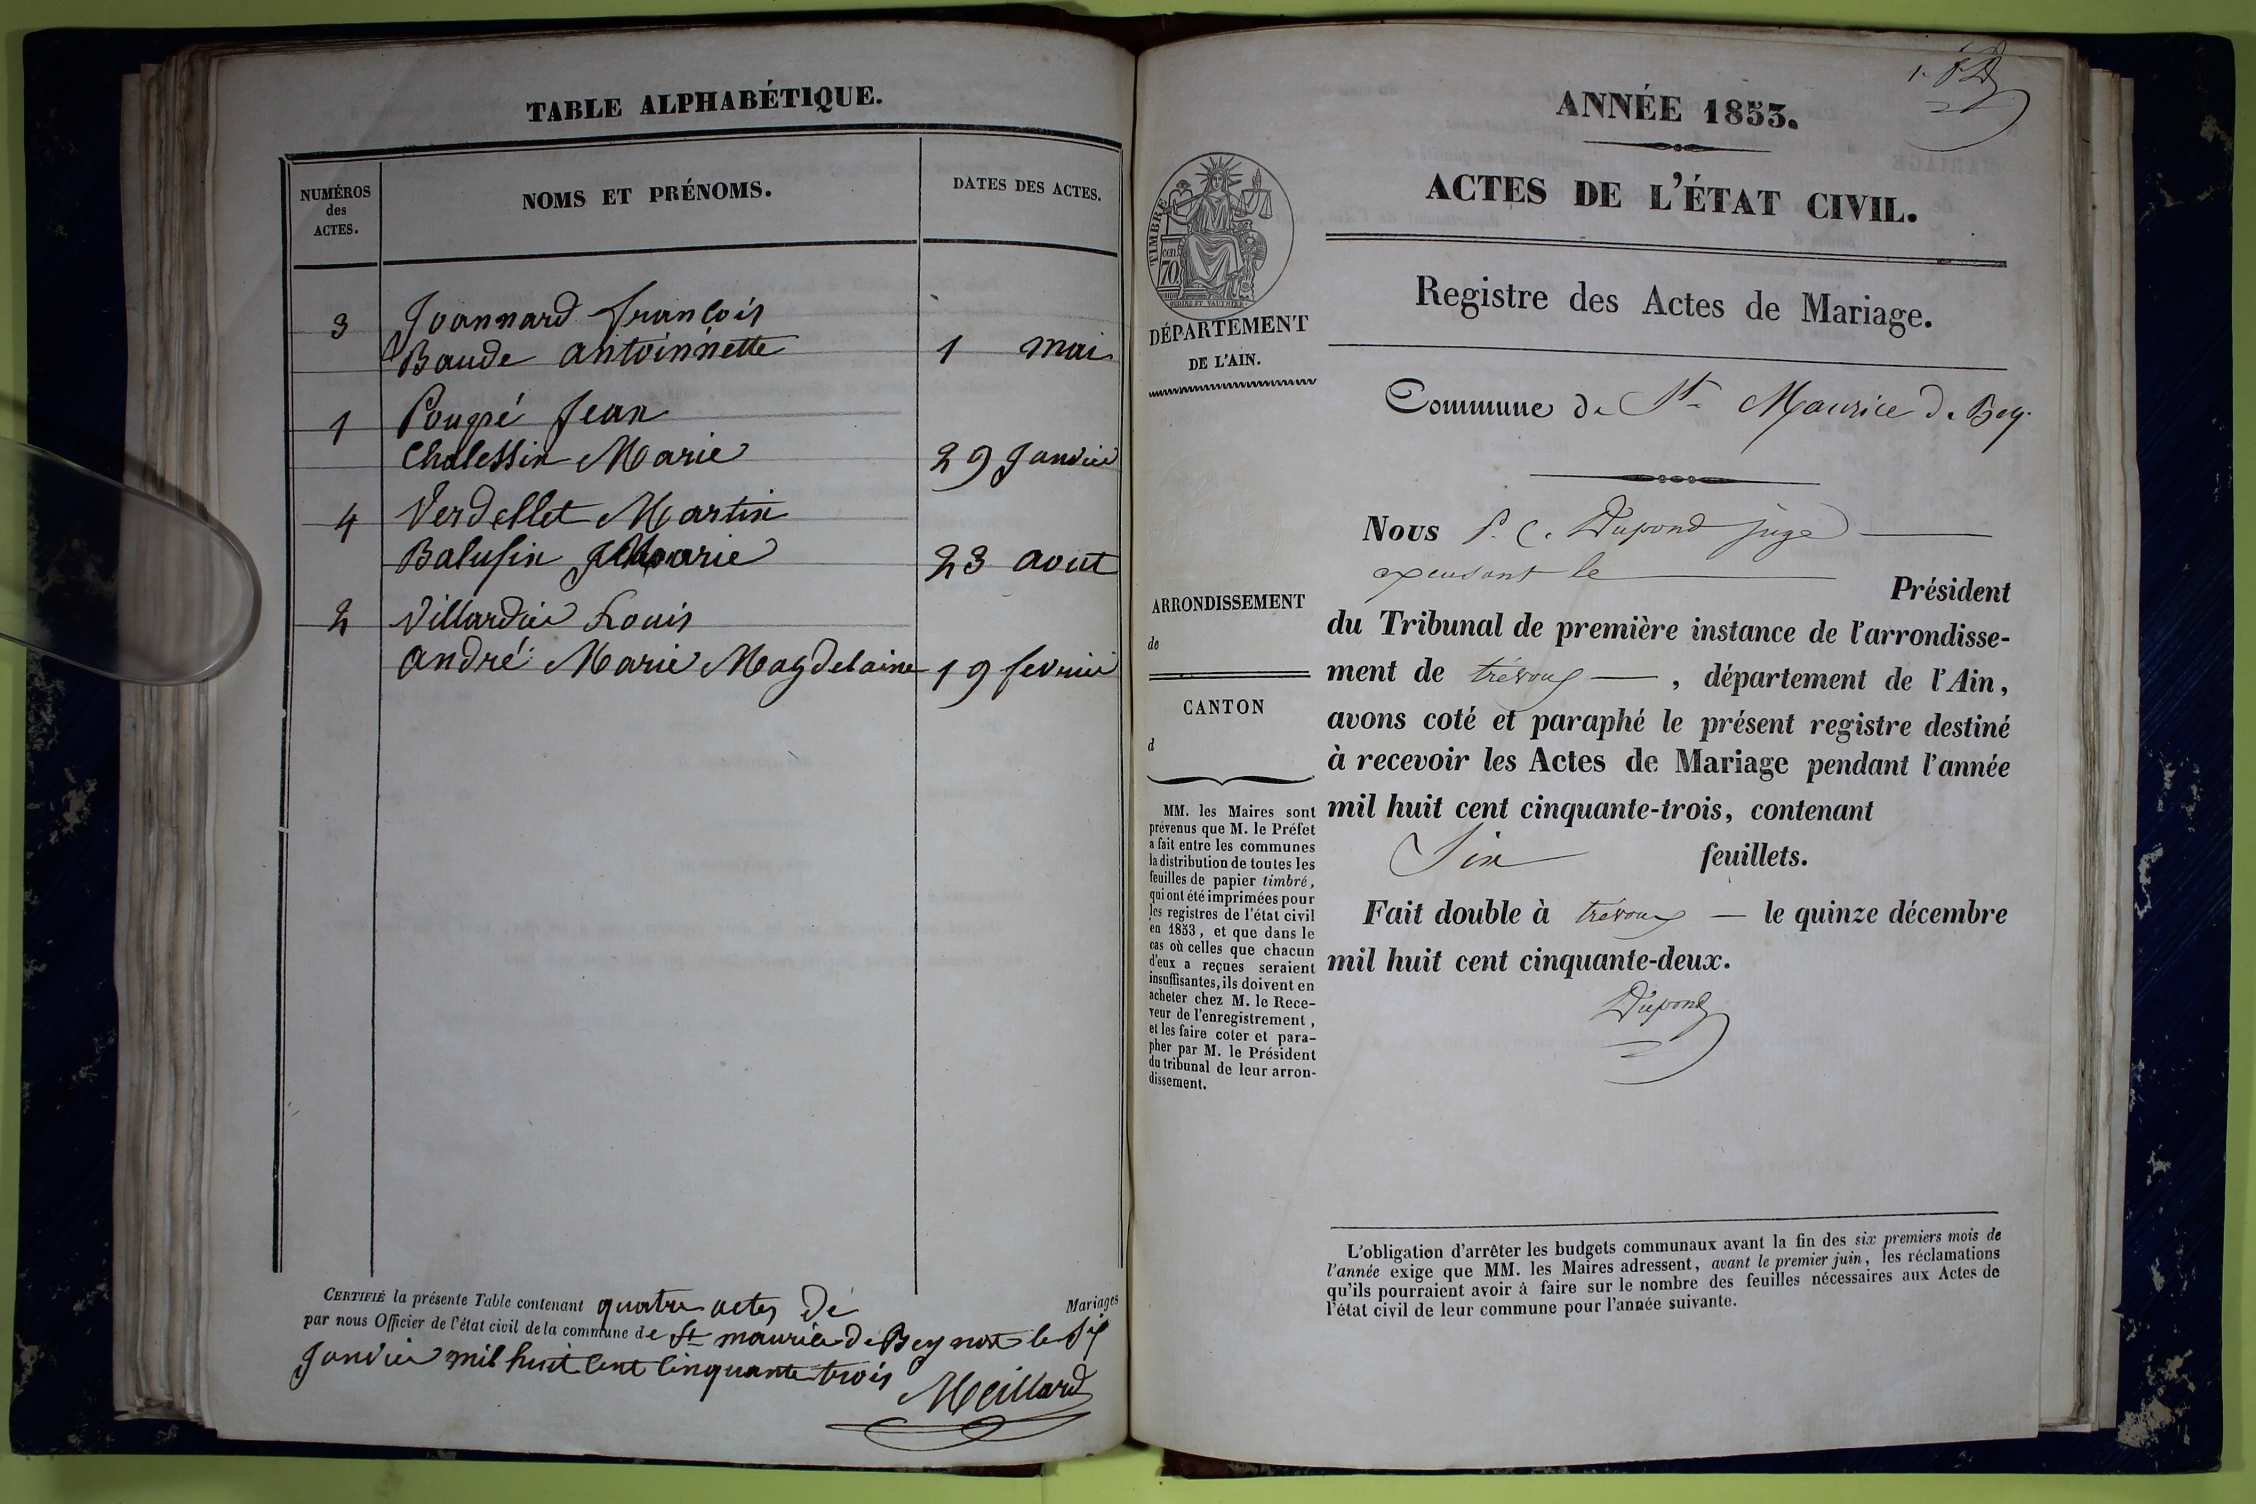 TABLE ALPHABÉTIQUE.
NUMÉROS
des
ACTES.
NOMS ET PRÉNOMS.
DATES DES ACTES.
3 Joannard françois
Baude antoinnette 1 mai
1 Poupé Jean
Chalessin Marie 29 Janvier
4 Verdellet Martin
Balufin Marie 23 aout
2 Villardier Louis
andré Marie Magdelaine 19 fevrier
CERTIFIÉ la présente Table contenant quatre actes de Mariages
par nous Officier de l'état civil de la commune de St maurice de Beynost le six
Janvier mil huit cent cinquante trois
Meillard
ANNÉE 1853.
ACTES DE L'ÉTAT CIVIL.
TIMBRE
70
DÉPARTEMENT
DE L'AIN.
Registre des Actes de Mariage.
Commune de St Maurice de Bey.
Nous P. C. Dupond juge
excusant le Président
du Tribunal de première instance de l'arrondisse-
ment de trévoux, département de l'Ain,
avons coté et paraphé le présent registre destiné
à recevoir les Actes de Mariage pendant l'année
mil huit cent cinquante-trois, contenant
Six feuillets.
Fait double à trévoux — le quinze décembre
mil huit cent cinquante-deux.
Dupond
ARRONDISSEMENT
de
CANTON
d
MM. les Maires sont
prévenus que M. le Préfet
a fait entre les communes
la distribution de toutes les
feuilles de papier timbré,
qui ont été imprimées pour
les registres de l'état civil
en 1853, et que dans le
cas où celles que chacun
d'eux a reçues seraient
insuffisantes, ils doivent en
acheter chez M. le Rece-
veur de l'enregistrement,
et les faire coter et para-
pher par M. le Président
du tribunal de leur arron-
dissement.
L'obligation d'arrêter les budgets communaux avant la fin des six premiers mois de
l'année exige que MM. les Maires adressent, avant le premier juin, les réclamations
qu'ils pourraient avoir à faire sur le nombre des feuilles nécessaires aux Actes de
l'état civil de leur commune pour l'année suivante.